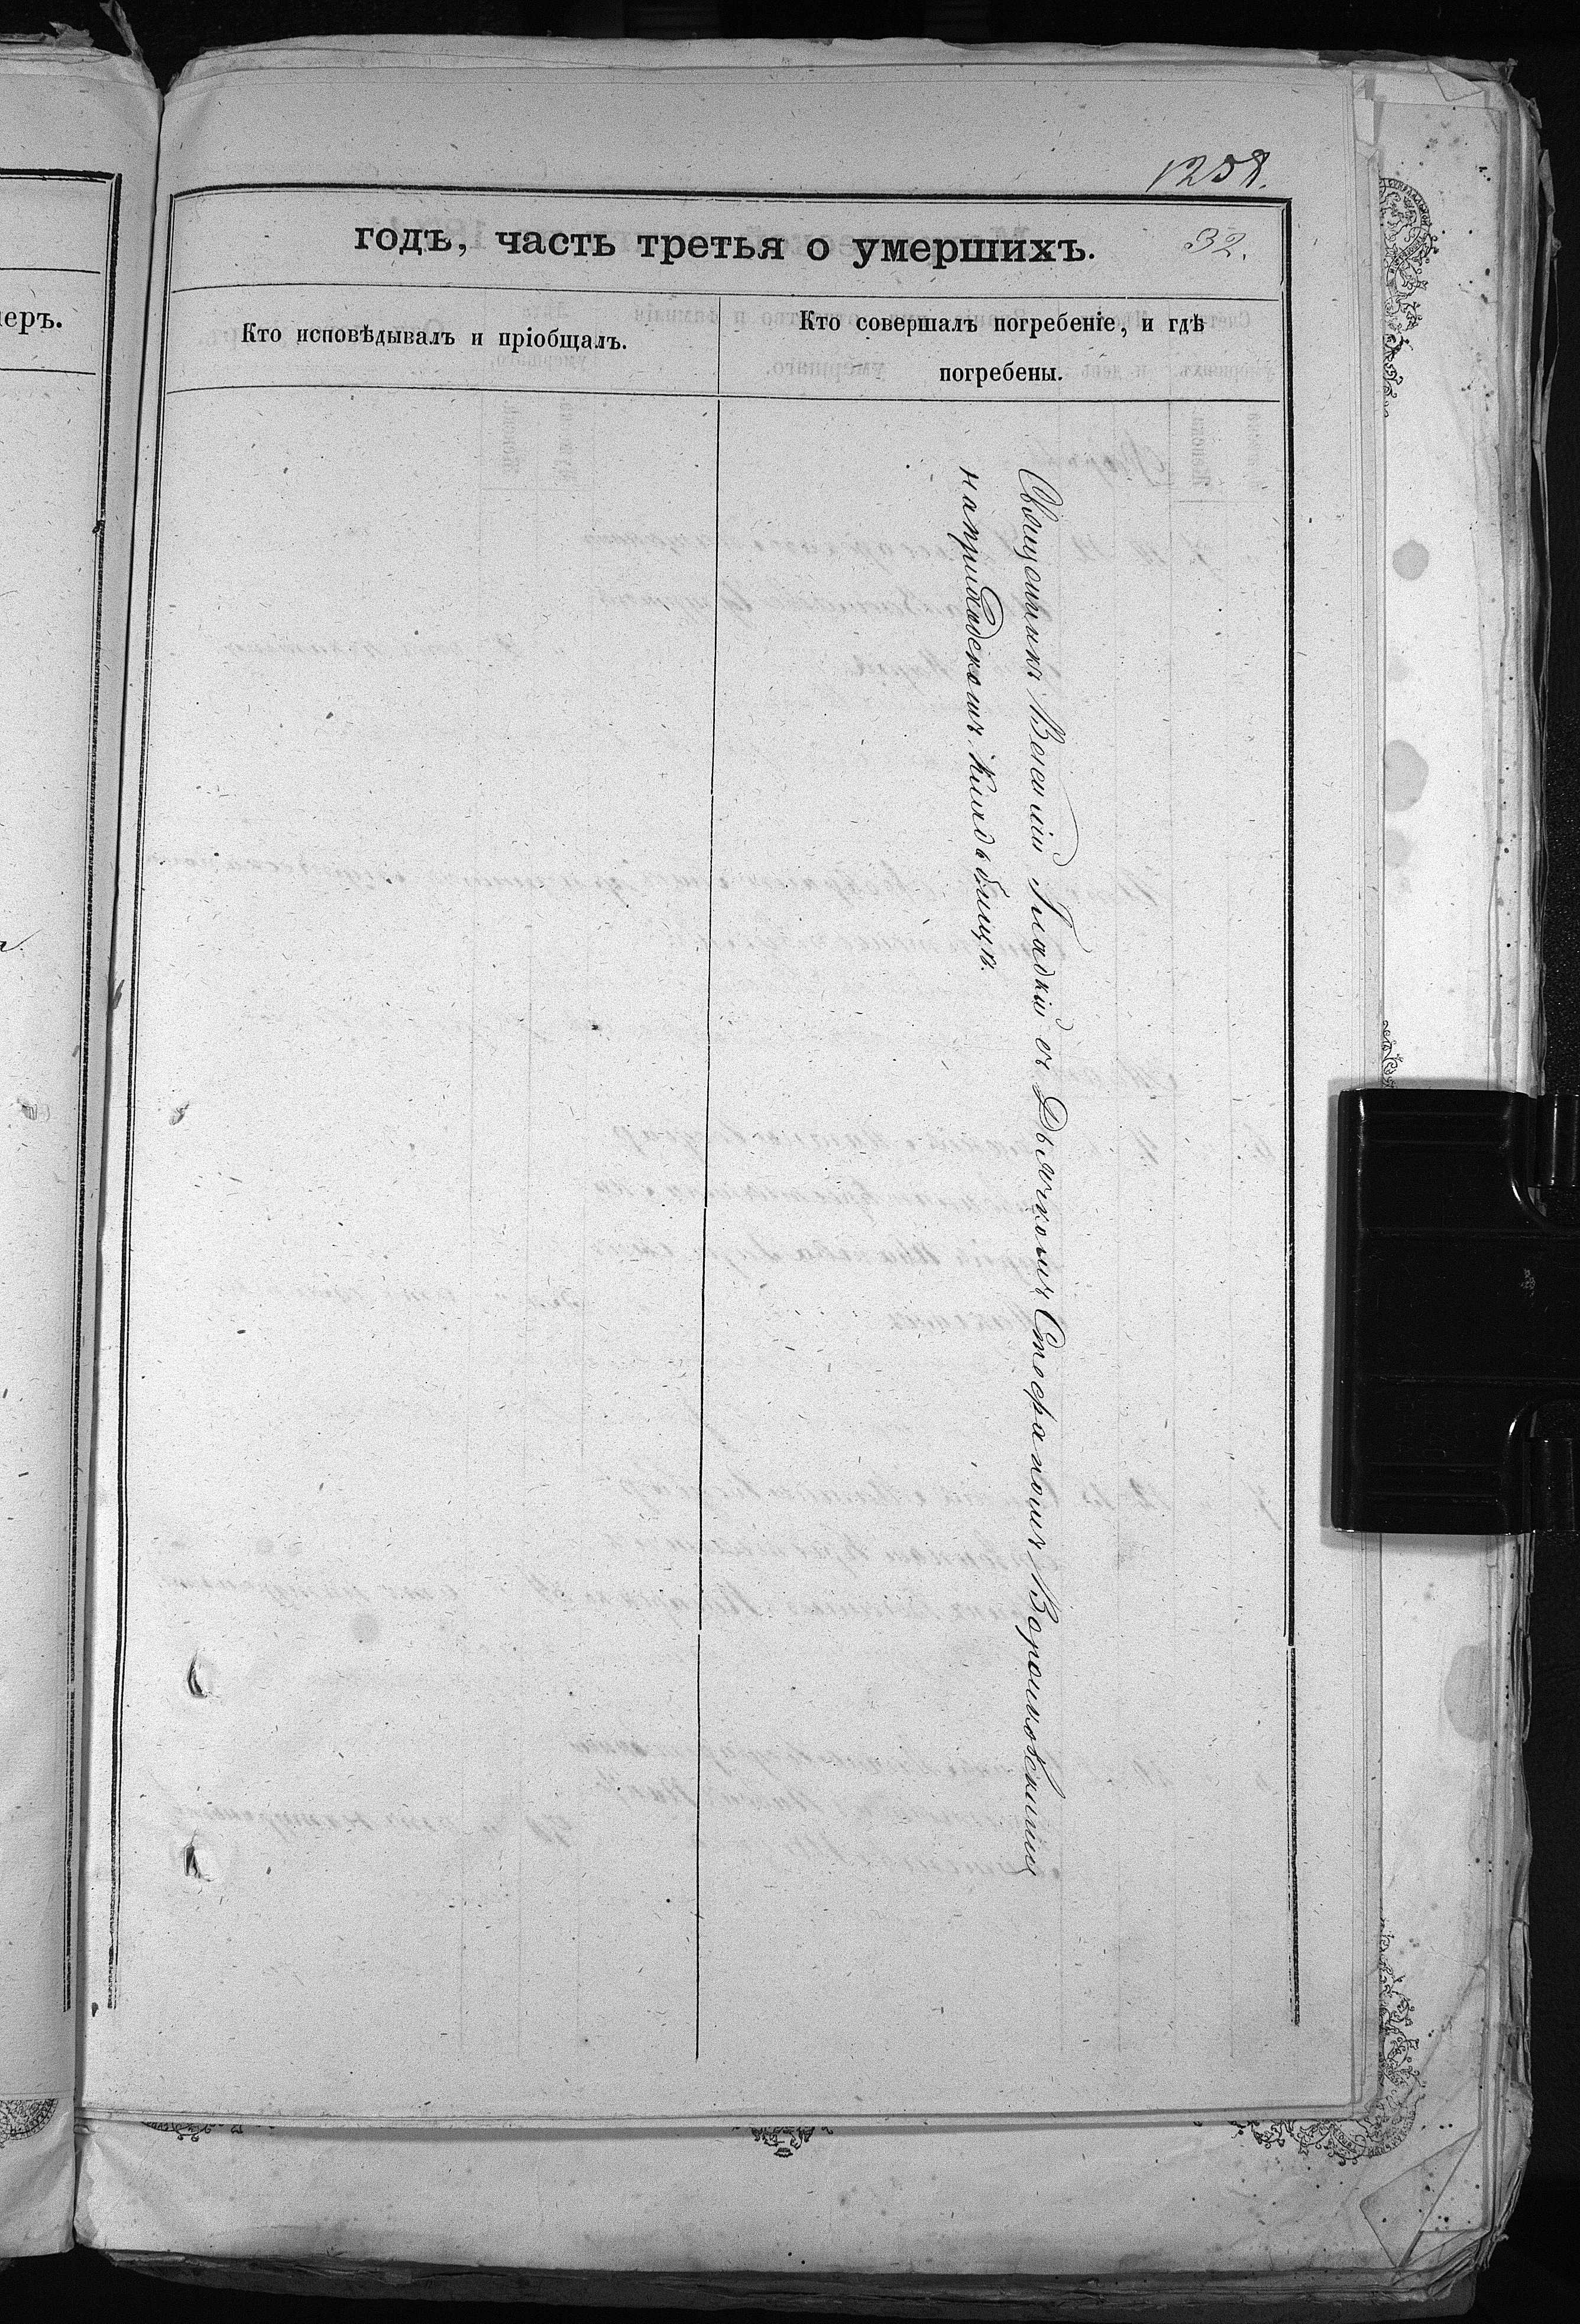 1258.
годъ, часть третья о умершихъ.
32.
Кто исповѣдывалъ и пріобщалъ.
Кто совершалъ погребеніе, и гдѣ
погребены.
Священникъ Василій Гладкій съ Дьячкомъ Стефаномъ Варошковскимъ
на приходскомъ кладбищѣ.
меръ.